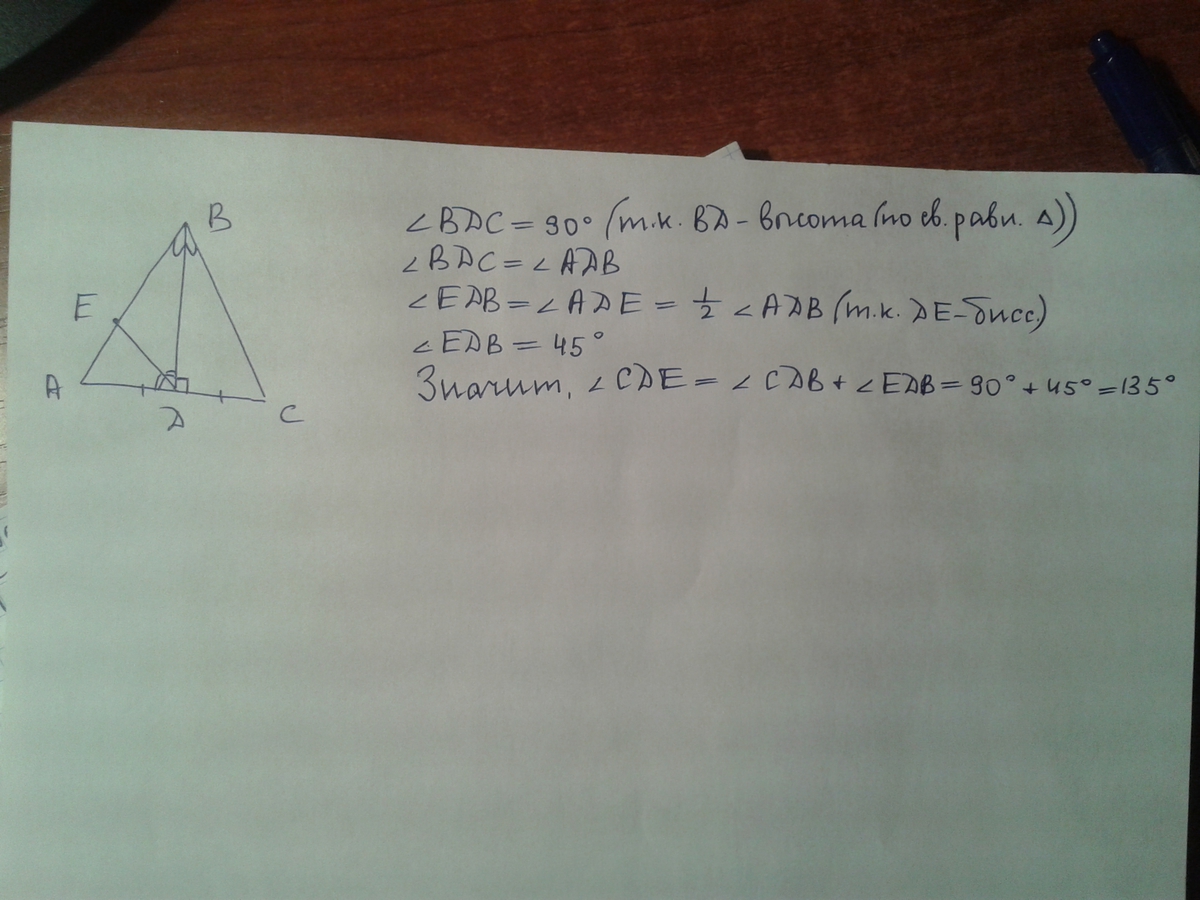 B
E
A
D
C
∠BDC = 90° (т.к. BD - высота (по св. равн. Δ))
∠BDC = ∠ADB
∠EDB = ∠ADE = 1/2 ∠ADB (т.к. DE - бисс.)
∠EDB = 45°
Значит, ∠CDE = ∠CDB + ∠EDB = 90° + 45° = 135°